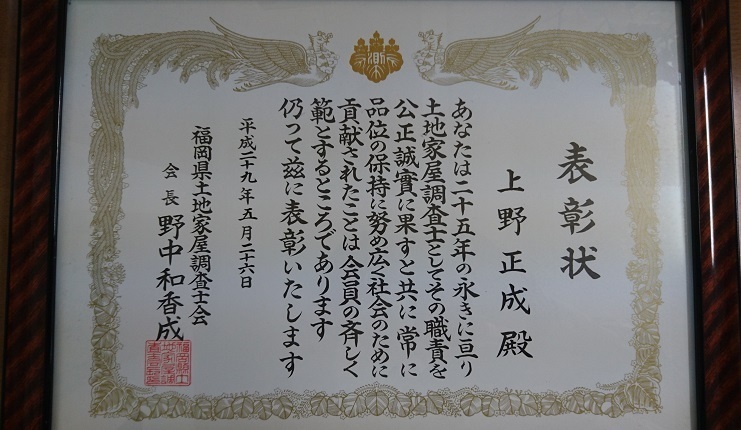 表彰状
上野正成殿
あなたは二十五年の永きに亘り
土地家屋調査士としてその職責を
公正誠實に果すと共に常に
品位の保持に努め広く社会のために
貢献されたことは会員の斉しく
範とするところであります
仍って茲に表彰いたします
平成二十九年五月二十六日
福岡県土地家屋調査士会
会長 野中和香成